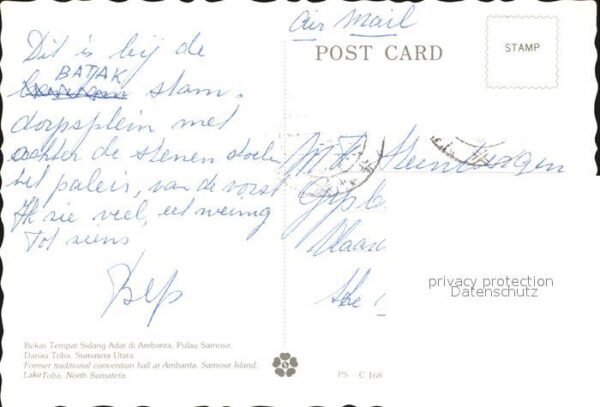 Air Mail
POST CARD
STAMP
Dit is bij de
BATAK
stam.
dorpsplein met
achter de stenen stoelen
het paleis, van de vorst
Ik zie veel, eet weinig
Tot ziens
Bep
privacy protection
Datenschutz
Bekas Tempat Sidang Adat di Ambarita, Pulau Samosir,
Danau Toba, Sumatera Utara
Former traditional convention hall at Ambarita, Samosir Island,
LakeToba, North Sumatera.
PS - C 168